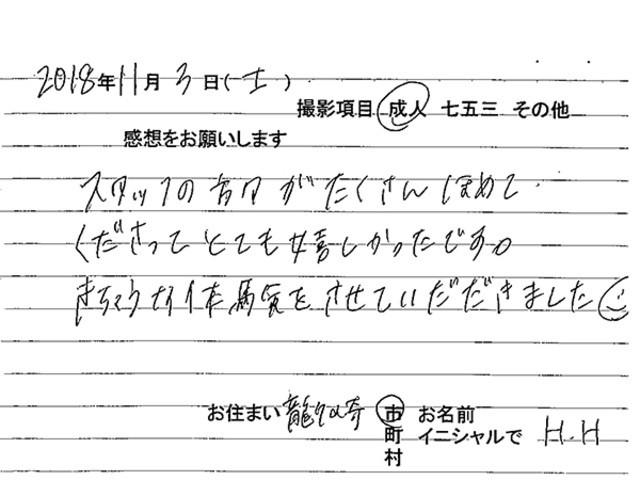 2018年11月3日(土)
撮影項目 成人 七五三 その他
感想をお願いします
スタッフの方々がたくさんほめて
くださってとても嬉しかったです。
きちょうな体馬気をさせていただきました
お住まい 龍ケ崎 市 お名前
町 イニシャルで H.H
村